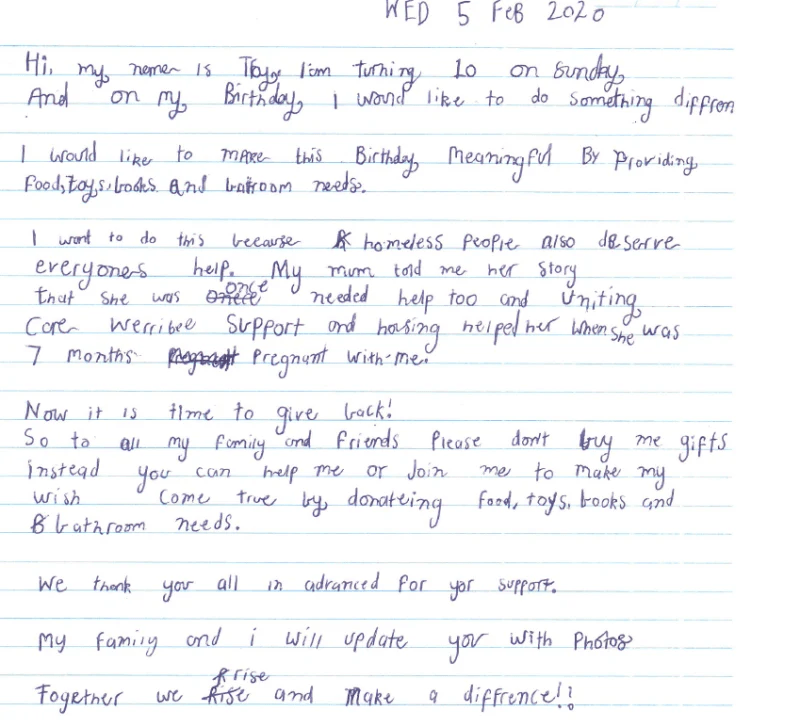 WED 5 FEB 2020
Hi, my nemer is I'm turning 10 on Sunday,
And on my Birthday, I would like to do something diffron
I would like to make this Birthday Meaningful By Providing
Food, toys, books and batroom needs.
I want to do this becouse homeless people also deserve
everyoners help. My mum told me her story
that she was once needed help too and Uniting
Care Werribee Support and housing helped her when she was
7 months Pregnant with me.
Now it is time to give back!
So to all my family and friends Please don't buy me gifts
instead you can help me or Join me to make my
wish come true by donateing food, toys, books and
bathroom needs.
We thank you all in advanced for yor support.
My family and i will update you with Photos
Together we rise and Make a diffrence!!